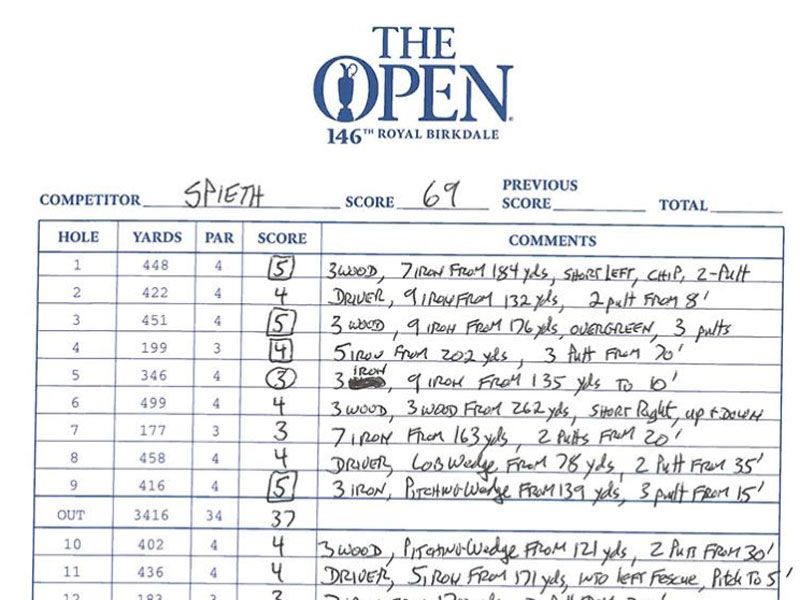 THE
OPEN
146TH ROYAL BIRKDALE
COMPETITOR SPIETH SCORE 69 PREVIOUS SCORE TOTAL
HOLE YARDS PAR SCORE COMMENTS
1 448 4 5 3 WOOD, 7 IRON FROM 184 yds, SHORT LEFT, CHIP, 2-Putt
2 422 4 4 DRIVER, 9 IRON FROM 132 yds, 2 putt FROM 8'
3 451 4 5 3 WOOD, 9 IRON FROM 176 yds, OVER GREEN, 3 putts
4 199 3 4 5 IRON FROM 202 yds, 3 Putt FROM 70'
5 346 4 3 3 IRON, 9 IRON FROM 135 yds TO 10'
6 499 4 4 3 WOOD, 3 WOOD FROM 262 yds, SHORT Right, up + DOWN
7 177 3 3 7 IRON FROM 163 yds, 2 Putts FROM 20'
8 458 4 4 DRIVER, LOB Wedge FROM 78 yds, 2 Putt FROM 35'
9 416 4 5 3 IRON, Pitching Wedge FROM 139 yds, 3 putt FROM 15'
OUT 3416 34 37
10 402 4 4 3 WOOD, Pitching Wedge FROM 121 yds, 2 Putt FROM 30'
11 436 4 4 DRIVER, 5 IRON FROM 171 yds, INTO left Fescue, Pitch TO 5'
12 183 3 3